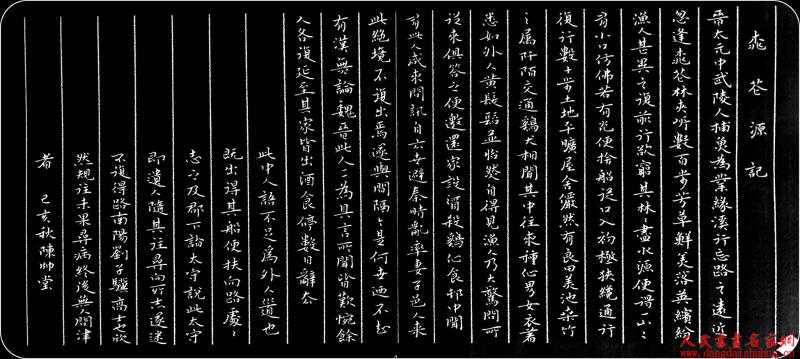 桃花源記
晉太元中武陵人捕魚為業緣溪行忘路之遠近
忽逢桃花林夾岸數百步芳草鮮美落英繽紛
漁人甚異之復前行欲窮其林〻盡水源便得一山〻
有小口仿佛若有光便捨船從口入初極狹纔通行
復行數十步土地平曠屋舍儼然有良田美池桑竹
之屬阡陌交通鷄犬相聞其中往來種作男女衣著
悉如外人黃髮髫並怡然自得見漁人乃大驚問所
從來俱答之便邀還家設酒殺鷄作食邨中聞
有此人咸來問訊自云世避秦時亂率妻子邑人來
此絕境不復出焉遂與間隔是何世迺不知
有漢無論魏晉此人〻為具言所聞皆歎惋餘
人各復延至其家皆出酒食停數日辭去
此中人語不足為外人道也
既出得其船便扶向路處〻
志之及郡下詣太守說此太守
即遣人隨其往尋向所志遂迷
不復得路南陽劉子驥高士也欣
然規往未果尋病終後無人問津
者 己亥秋陳帥堂
www.dangdaishuhua.com